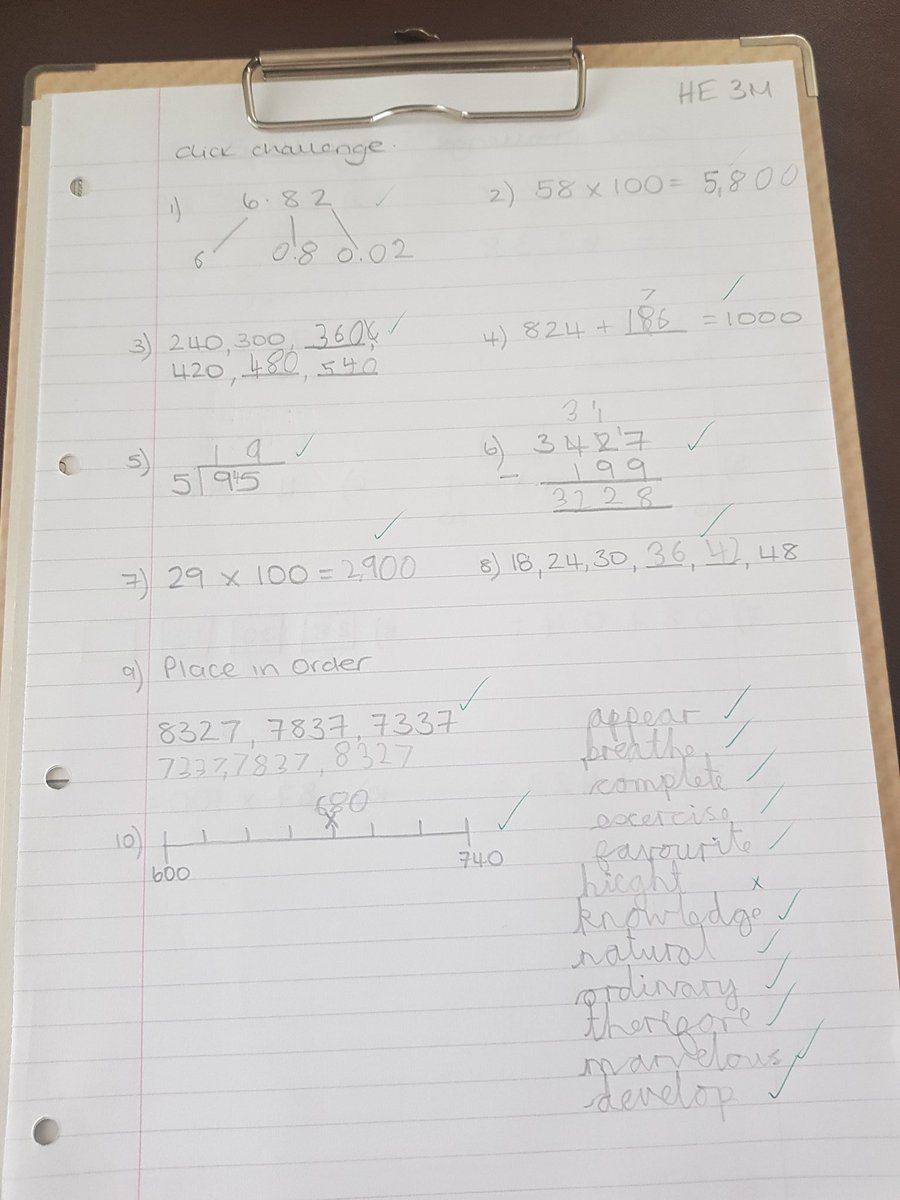 HE 3M
click challenge.
1) 6.82
6 0.8 0.02
2) 58 × 100 = 5,800
3) 240, 300, 360,
420, 480, 540
7
4) 824 + 186 = 1000
1 9
5) 5 945
3 1 1
6) 3427
- 199
3228
7) 29 × 100 = 2,900
8) 18, 24, 30, 36, 42, 48
9) Place in order
8327, 7837, 7337
7337, 7837, 8327
680
10)
600 740
appear
breathe
complete
excercise
favourite
hieght
knowledge
natural
ordinary
therefore
marvelous
develop